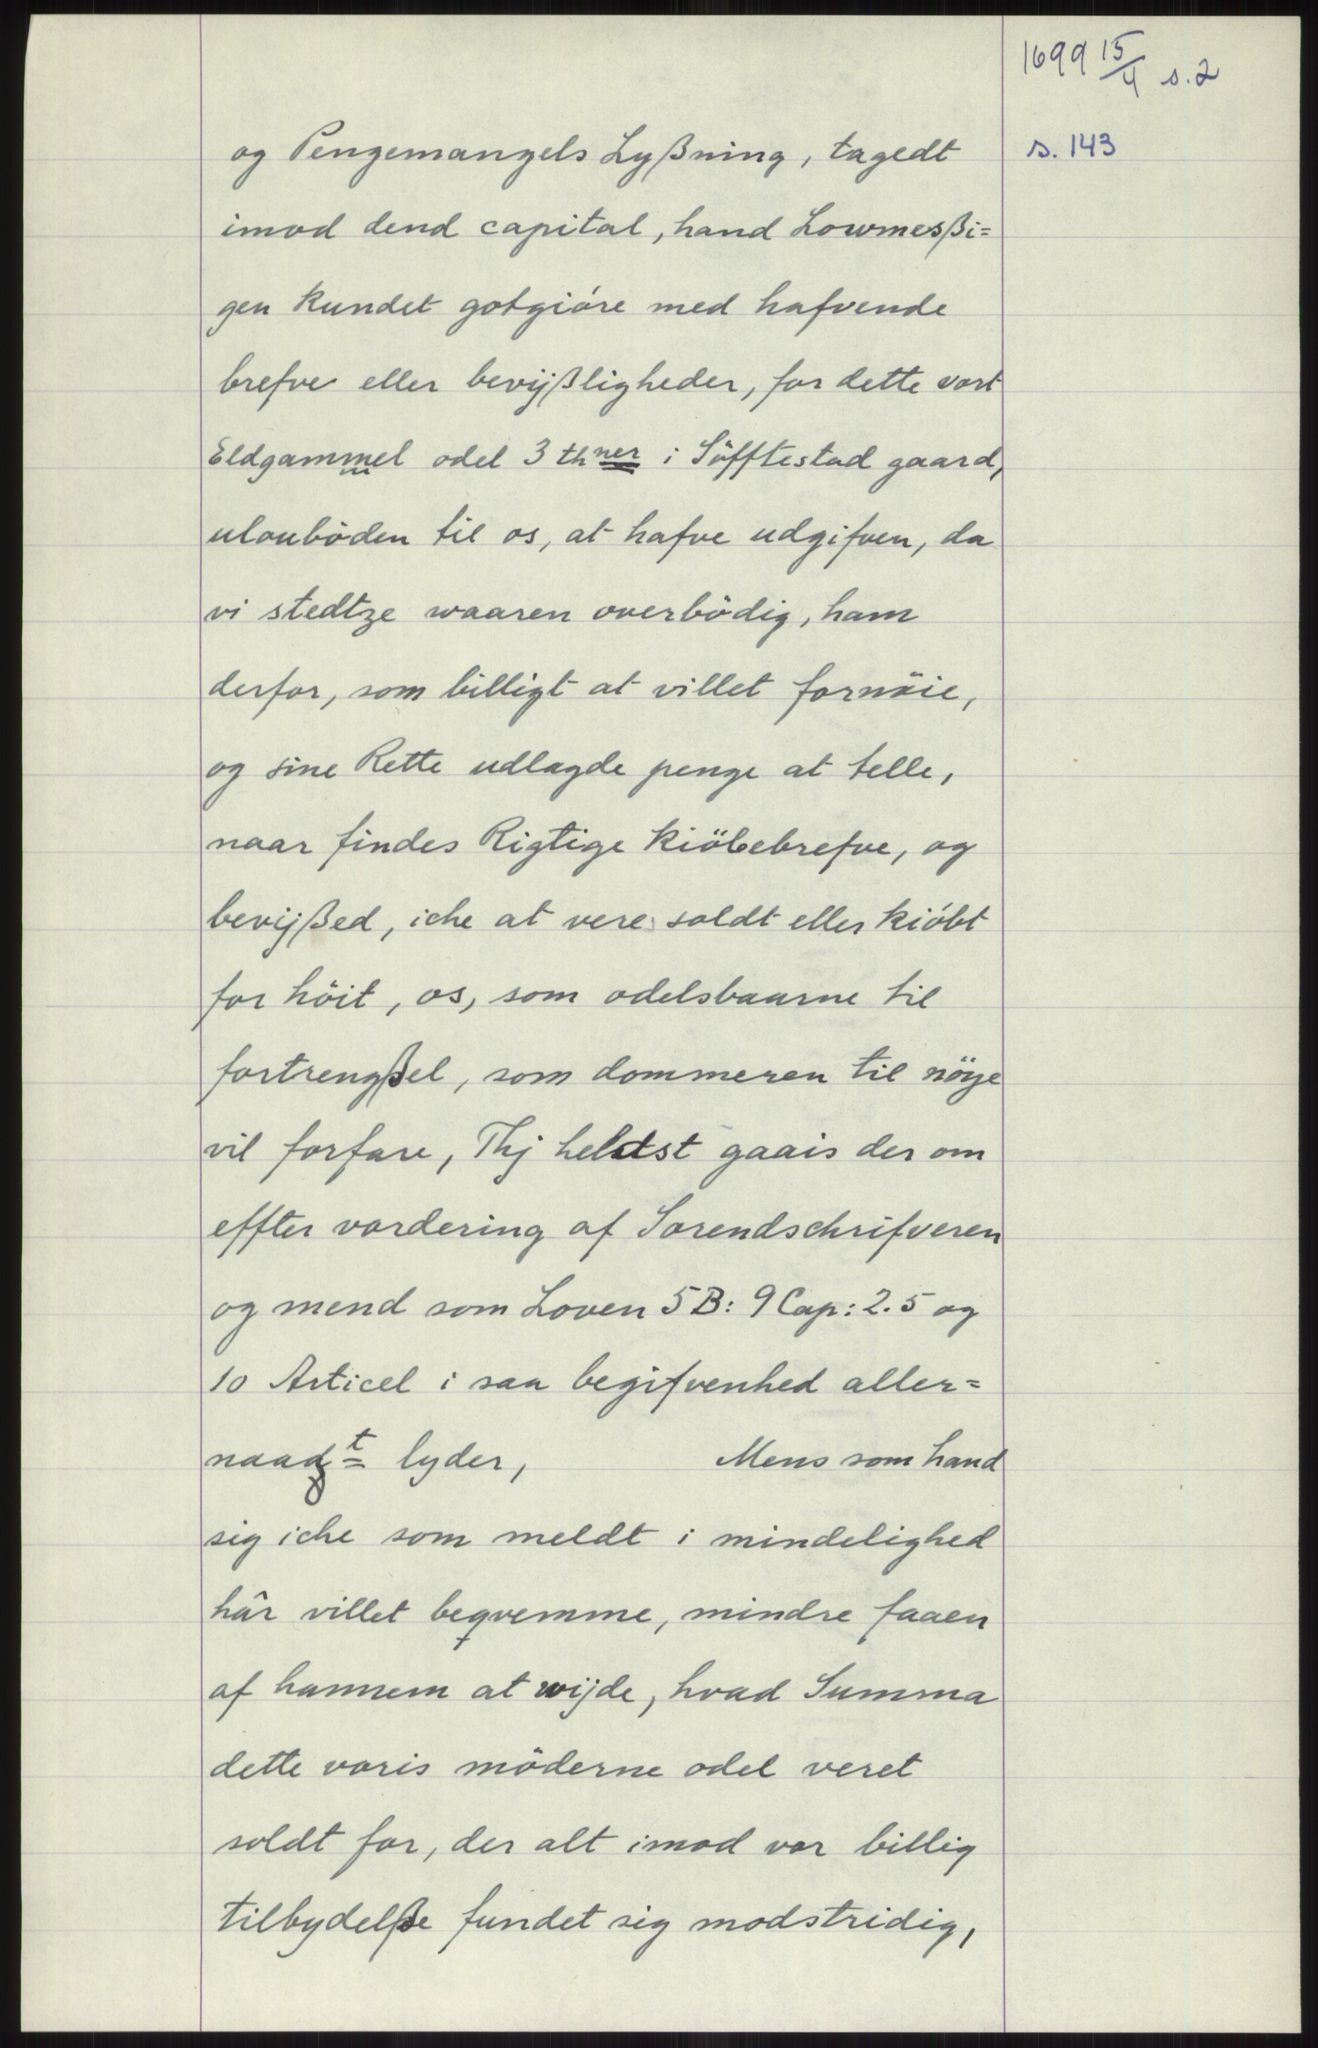 1699 15/4 s. 2
s. 143
og Pengemangels Lyßning, tagedt
imod dend capital, hand Lowmesßi=
gen kundet gotgióre med hafvende
brefve eller bevijßligheder, for dette vort
Eldgammel odel 3 thner i Söfftestad gaard,
uloubóden til os, at hafve udgifven, da
vi stedtze waaren overbödig, ham
derfor, som billigt at villet fornöie,
og sine Rette udlagde penge at telle,
naar findes Rigtige kiöbebrefve, og
bevijßed, iche at vere soldt eller kióbt
for höit, os, som odelsbaarne til
fortrengßel, som dommeren til nöye
vil forfare, Thj heldst gaais der om
effter vordering af Sorendschrifveren
og mend som Loven 5 B: 9 Cap: 2. 5 og
10 Articel i saa begifvenhed aller=
naadgt lyder, Mens som hand
sig iche som meldt i mindelighed
hâr villet beqvemme, mindre faaen
af hannem at wijde, hvad Summa
dette voris möderne odel veret
soldt for, der alt imod vor billig
tilbydelße fundet sig modstridig,